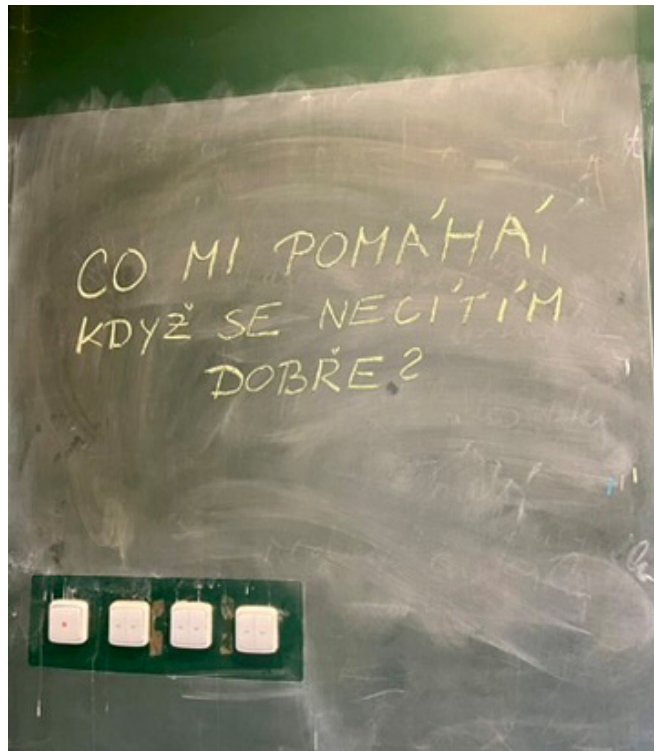 CO MI POMÁHÁ,
KDYŽ SE NECÍTÍM
DOBŘE?